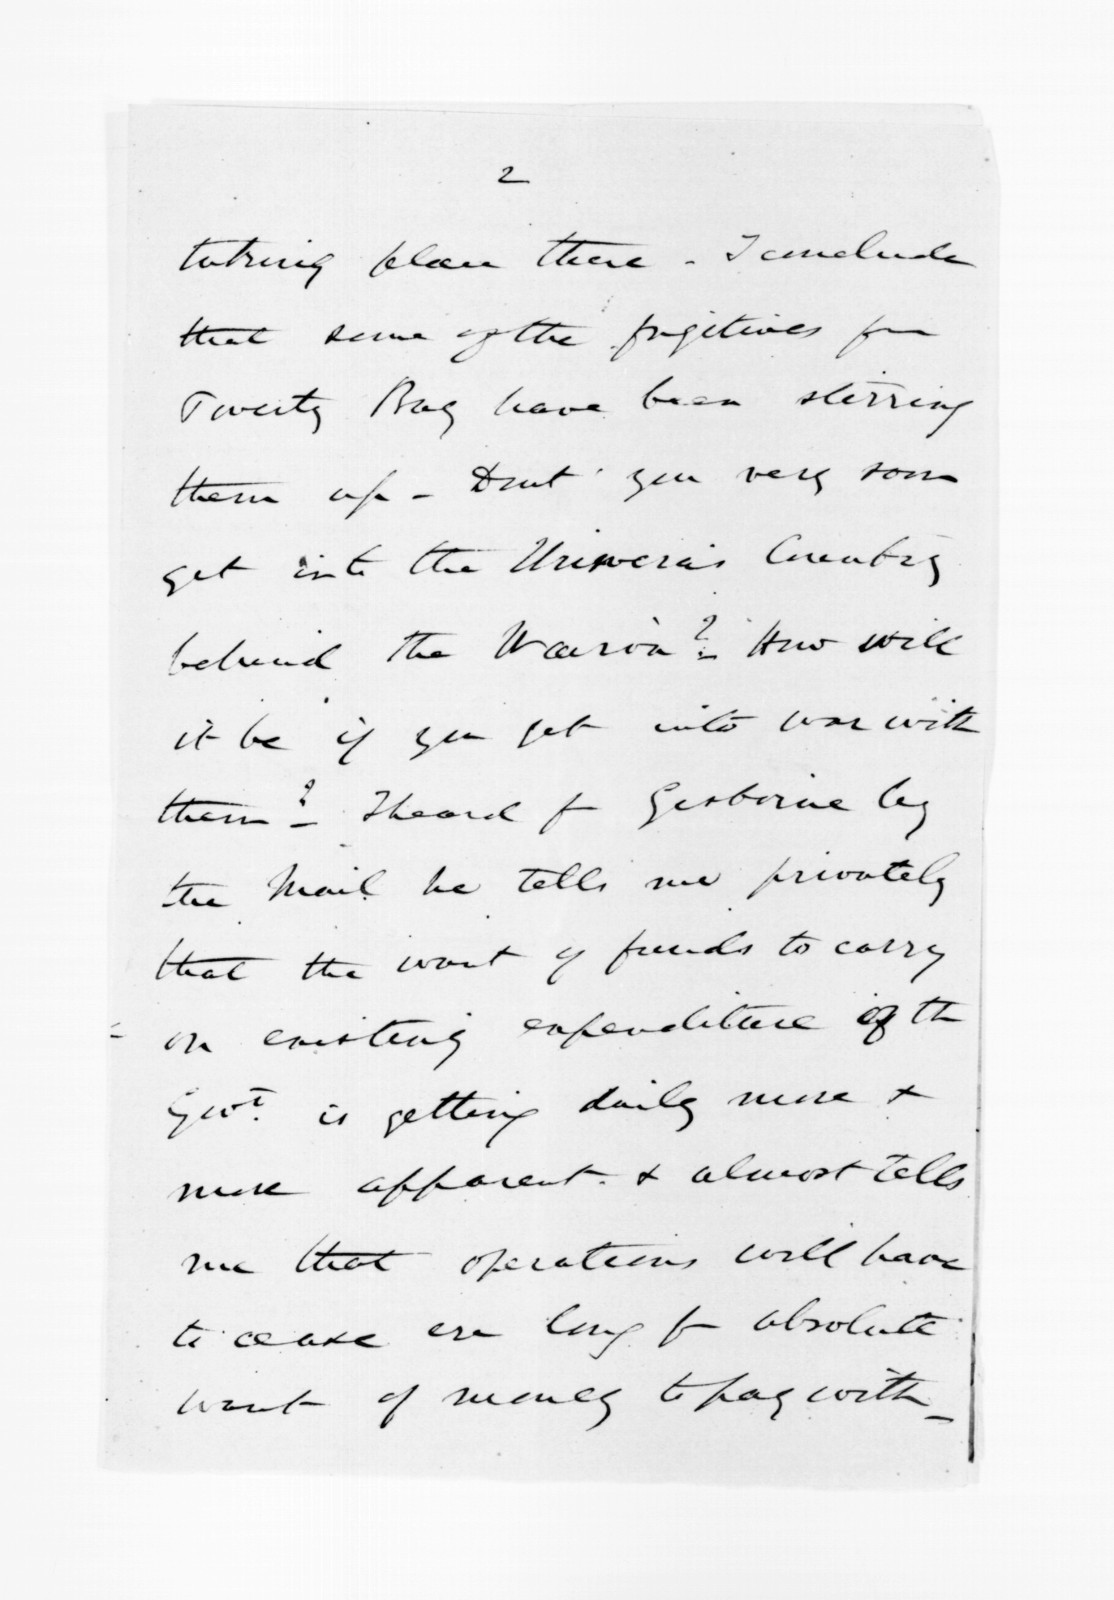 2
taking place there - I conclude
that some of the fugitives fm
Poverty Bay have been stirring
them up - Dont you very soon
get into the Uriwera's Country
behind the Wairoa? - How will
it be if you get into war with
them? - I heard fm Gisborne by
the Mail he tells me privately
that the want of funds to carry
on existing expenditure of the
Govt. is getting daily more &
more apparent. & almost tells
me that operations will have
to cease ere long fm absolute
want of money to pay with -